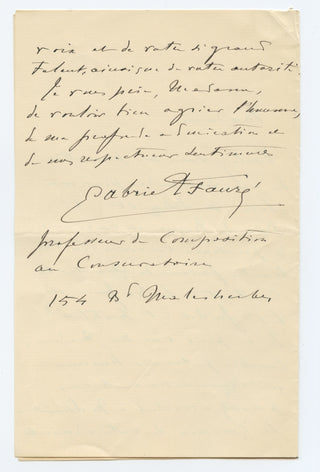 voix et de votre si grand
talent, ainsi que de votre autorité.
Je vous prie, Madame,
de vouloir bien agréer l'hommage
de ma profonde admiration et
de mes respectueux sentiments
Gabriel Fauré
professeur de Composition
au Conservatoire
154 Bd Malesherbes